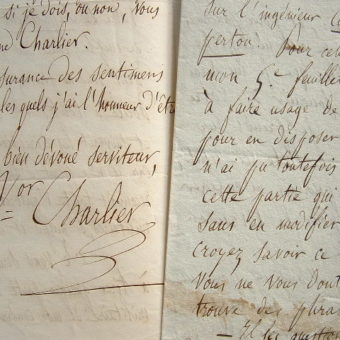 si je dois, ou non, vous
Charlier.
surance des sentimens
lesquels j'ai l'honneur d'êtr
bien dévoué serviteur,
Charlier
sur l'ingénieur
perton. Pour cet
mon 5.e feuillet
à faire usage de
pour en disposer
n'ai pu toutefois
cette partie qui
sans en modifier
croyez savoir ce
Vous ne vous dout
trouve des phras
les question